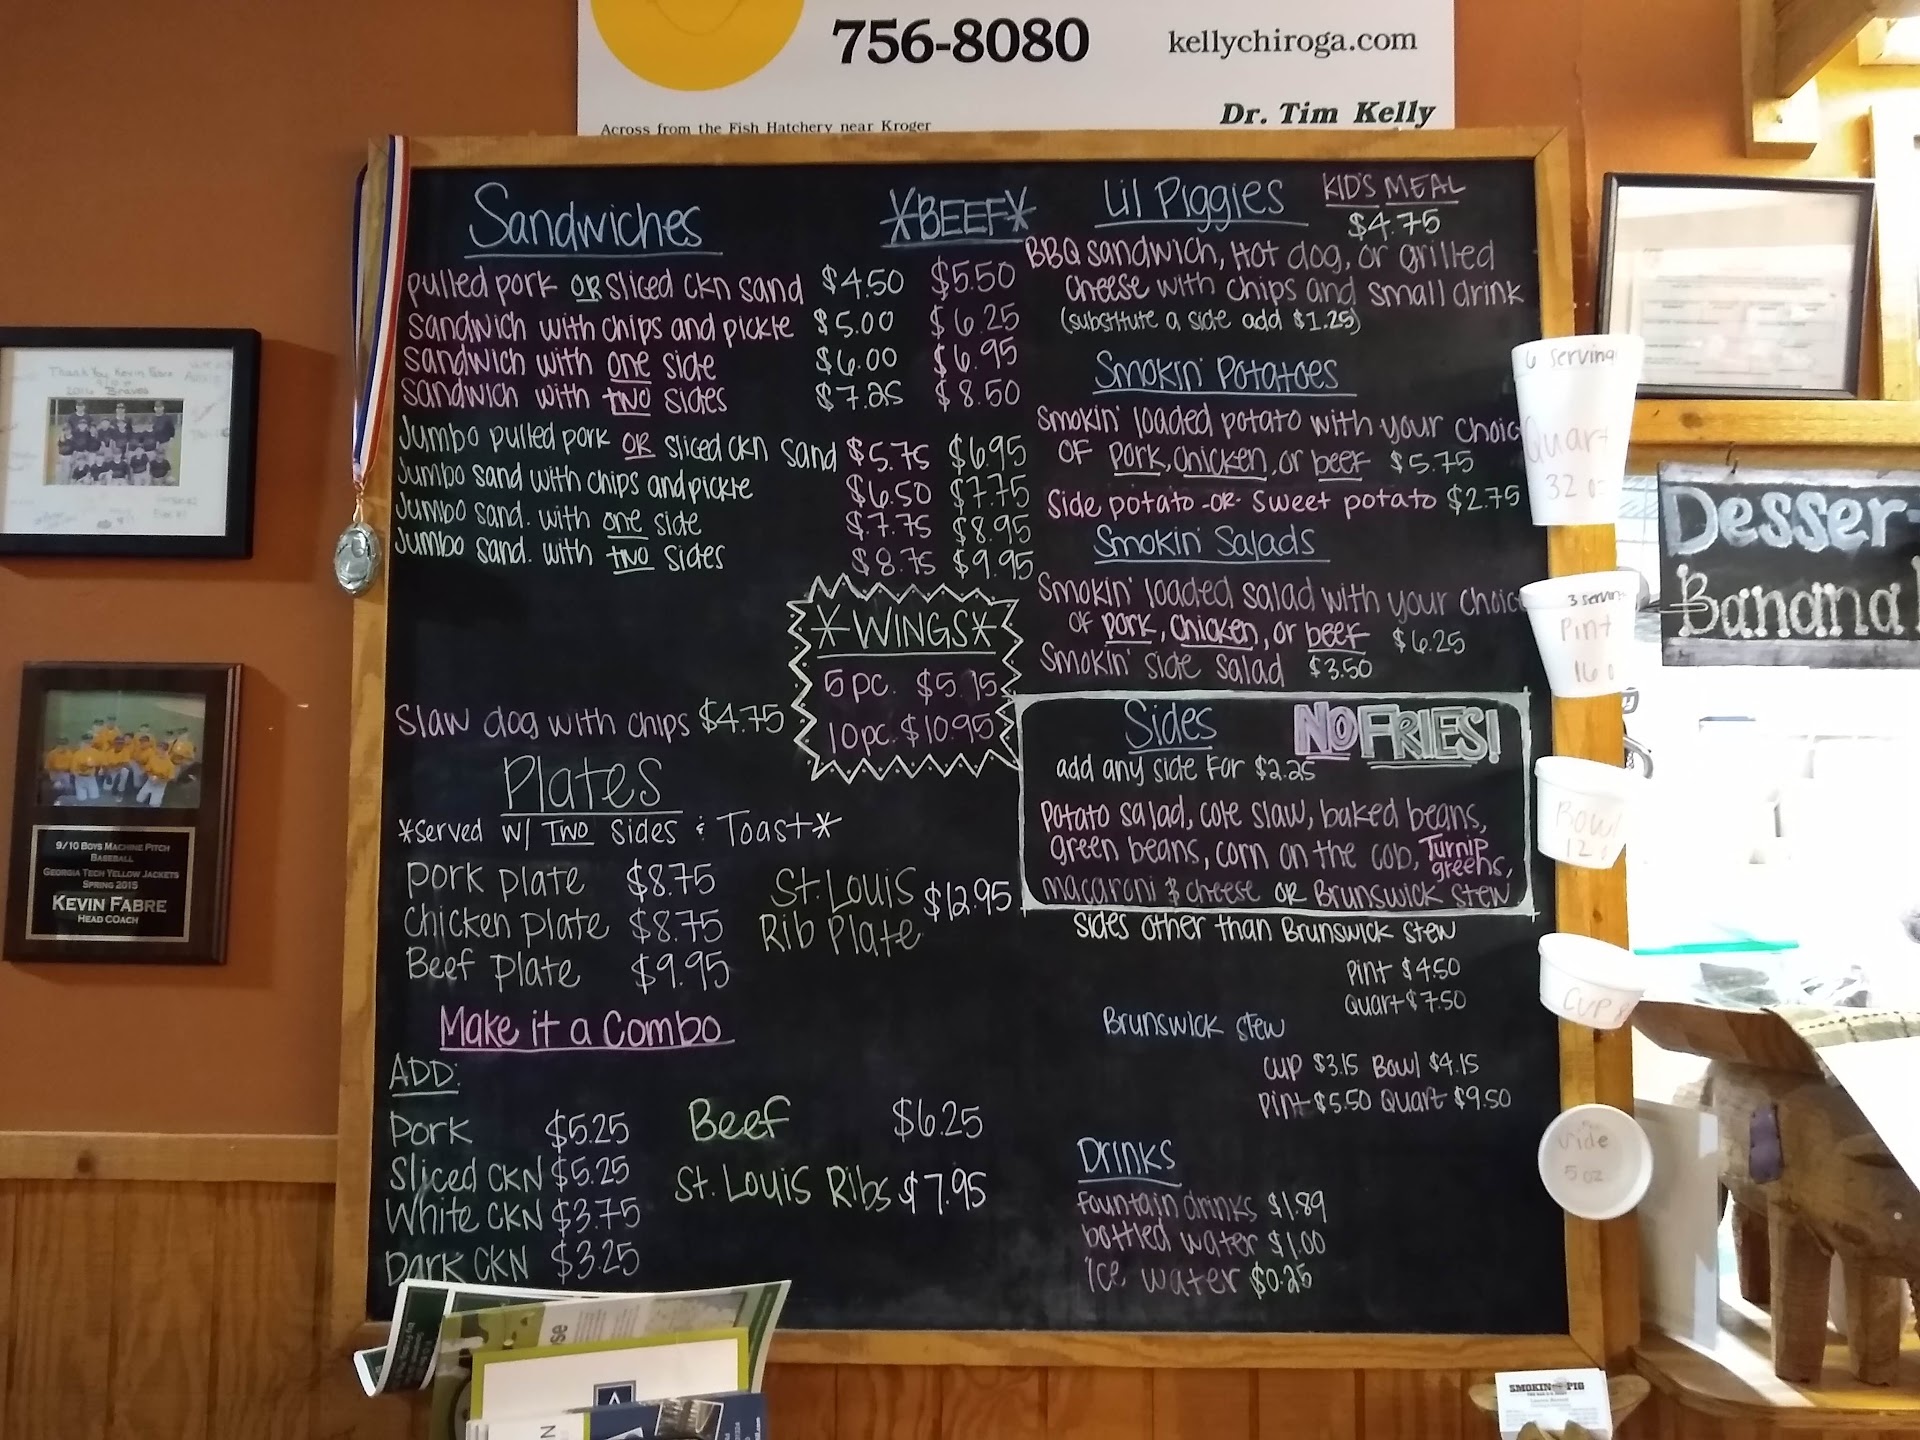 756-8080
kellychiroga.com
Dr. Tim Kelly
Across from the Fish Hatchery near Kroger
Sandwiches
*BEEF*
pulled pork OR sliced ckn sand $4.50 $5.50
sandwich with chips and pickle $5.00 $6.25
sandwich with one side $6.00 $6.95
sandwich with two sides $7.25 $8.50
Jumbo pulled pork OR sliced ckn sand $5.75 $6.95
Jumbo sand with chips and pickle $6.50 $7.75
Jumbo sand. with one side $7.75 $8.95
Jumbo sand. with two sides $8.75 $9.95
*WINGS*
5 pc. $5.75
10 pc. $10.95
Slaw dog with chips $4.75
Plates
*served w/ TWO sides & Toast*
Pork plate $8.75
Chicken plate $8.75
Beef plate $9.95
St. Louis
Rib Plate $12.95
Make it a Combo
ADD:
Pork $5.25
Sliced CKN $5.25
White CKN $3.75
Dark CKN $3.25
Beef $6.25
St. Louis Ribs $7.95
Lil Piggies
KID'S MEAL
$4.75
BBQ sandwich, Hot dog, or grilled
cheese with chips and small drink
(substitute a side add $1.25)
Smokin' Potatoes
Smokin' loaded potato with your choic
of pork, chicken, or beef $5.75
Side potato -or- sweet potato $2.75
Smokin' Salads
Smokin' loaded salad with your choic
of pork, chicken, or beef $6.25
Smokin' side salad $3.50
Sides
NO FRIES!
add any side for $2.25
Potato salad, cole slaw, baked beans,
green beans, corn on the cob, Turnip greens,
macaroni & cheese or Brunswick stew
sides other than Brunswick stew
Pint $4.50
Quart $7.50
Brunswick stew
Cup $3.15 Bowl $4.15
Pint $5.50 Quart $9.50
Drinks
Fountain drinks $1.89
bottled water $1.00
ice water $0.25
6 serving
Quart
32 oz
3 servin
Pint
16 o
Bowl
12 o
Cup 8
side
5 oz
Desser
Banana
Thank You Kevin Fabre
2016 Braves
9/10 Boys Machine Pitch
Baseball
Georgia Tech Yellow Jackets
Spring 2015
Kevin Fabre
Head Coach
SMOKIN PIG